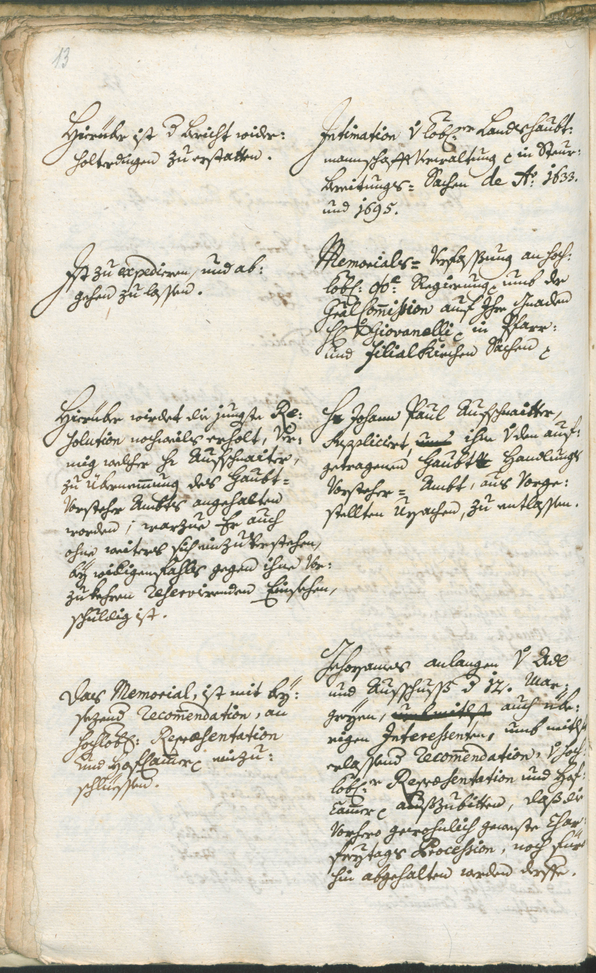 13
Hierüber ist d bericht wider:
holterdingen zu erstatten.
Intimation v Löbl:er Landtshaubt:
mannschaff Verwaltung in Steur:
bereitungs= Sachen de Ao: 1633.
und 1695.
Ist zu expedieren, und ab:
gehen zu lassen.
Memorials= Verfassung an hoch:
löbl: Regierung, umb die
Commission auf Ihr Gnaden
Giovanelli in Pfarr:
und Filial Kirchen Sachen
Hierüber wirdet die jüngste Re:
solution nochmals erholt, Ver:
mög welcher H: Aufschnaiter,
zu übernemmung des Haubt=
Vorsteher Ambts angehalten
worden; warzue Er auch
ohne weiters sich einzuverstehen,
bey widrigenfahls gegen ihne Vor:
zukehren reservirenden Einsehen,
schuldig ist.
Hr Johann Paul Aufschnaitter,
suppliciert, ihn v dem auf:
getragenen Haubt Handlungs
Vorsteher= Ambt, aus Vorge:
stellten ursachen, zu entlassen.
Das Memorial, ist mit bey:
sezend recommendation, an
hochlöbl: Repræsentation
und Hofkammer einzu:
schliessen.
Gehorsames anlangen v
und Ausschuss d 12. Mar:
auch übe:
rigen Interessenten, umb mit
erlassend recommendation, v hoch:
löbl:er Repræsentation und Hof:
Cammer auszubitten, dass die
Vorhero gewohnlich geweste Char:
freytags Procession, noch für:
hin abgehalten werden derffe.